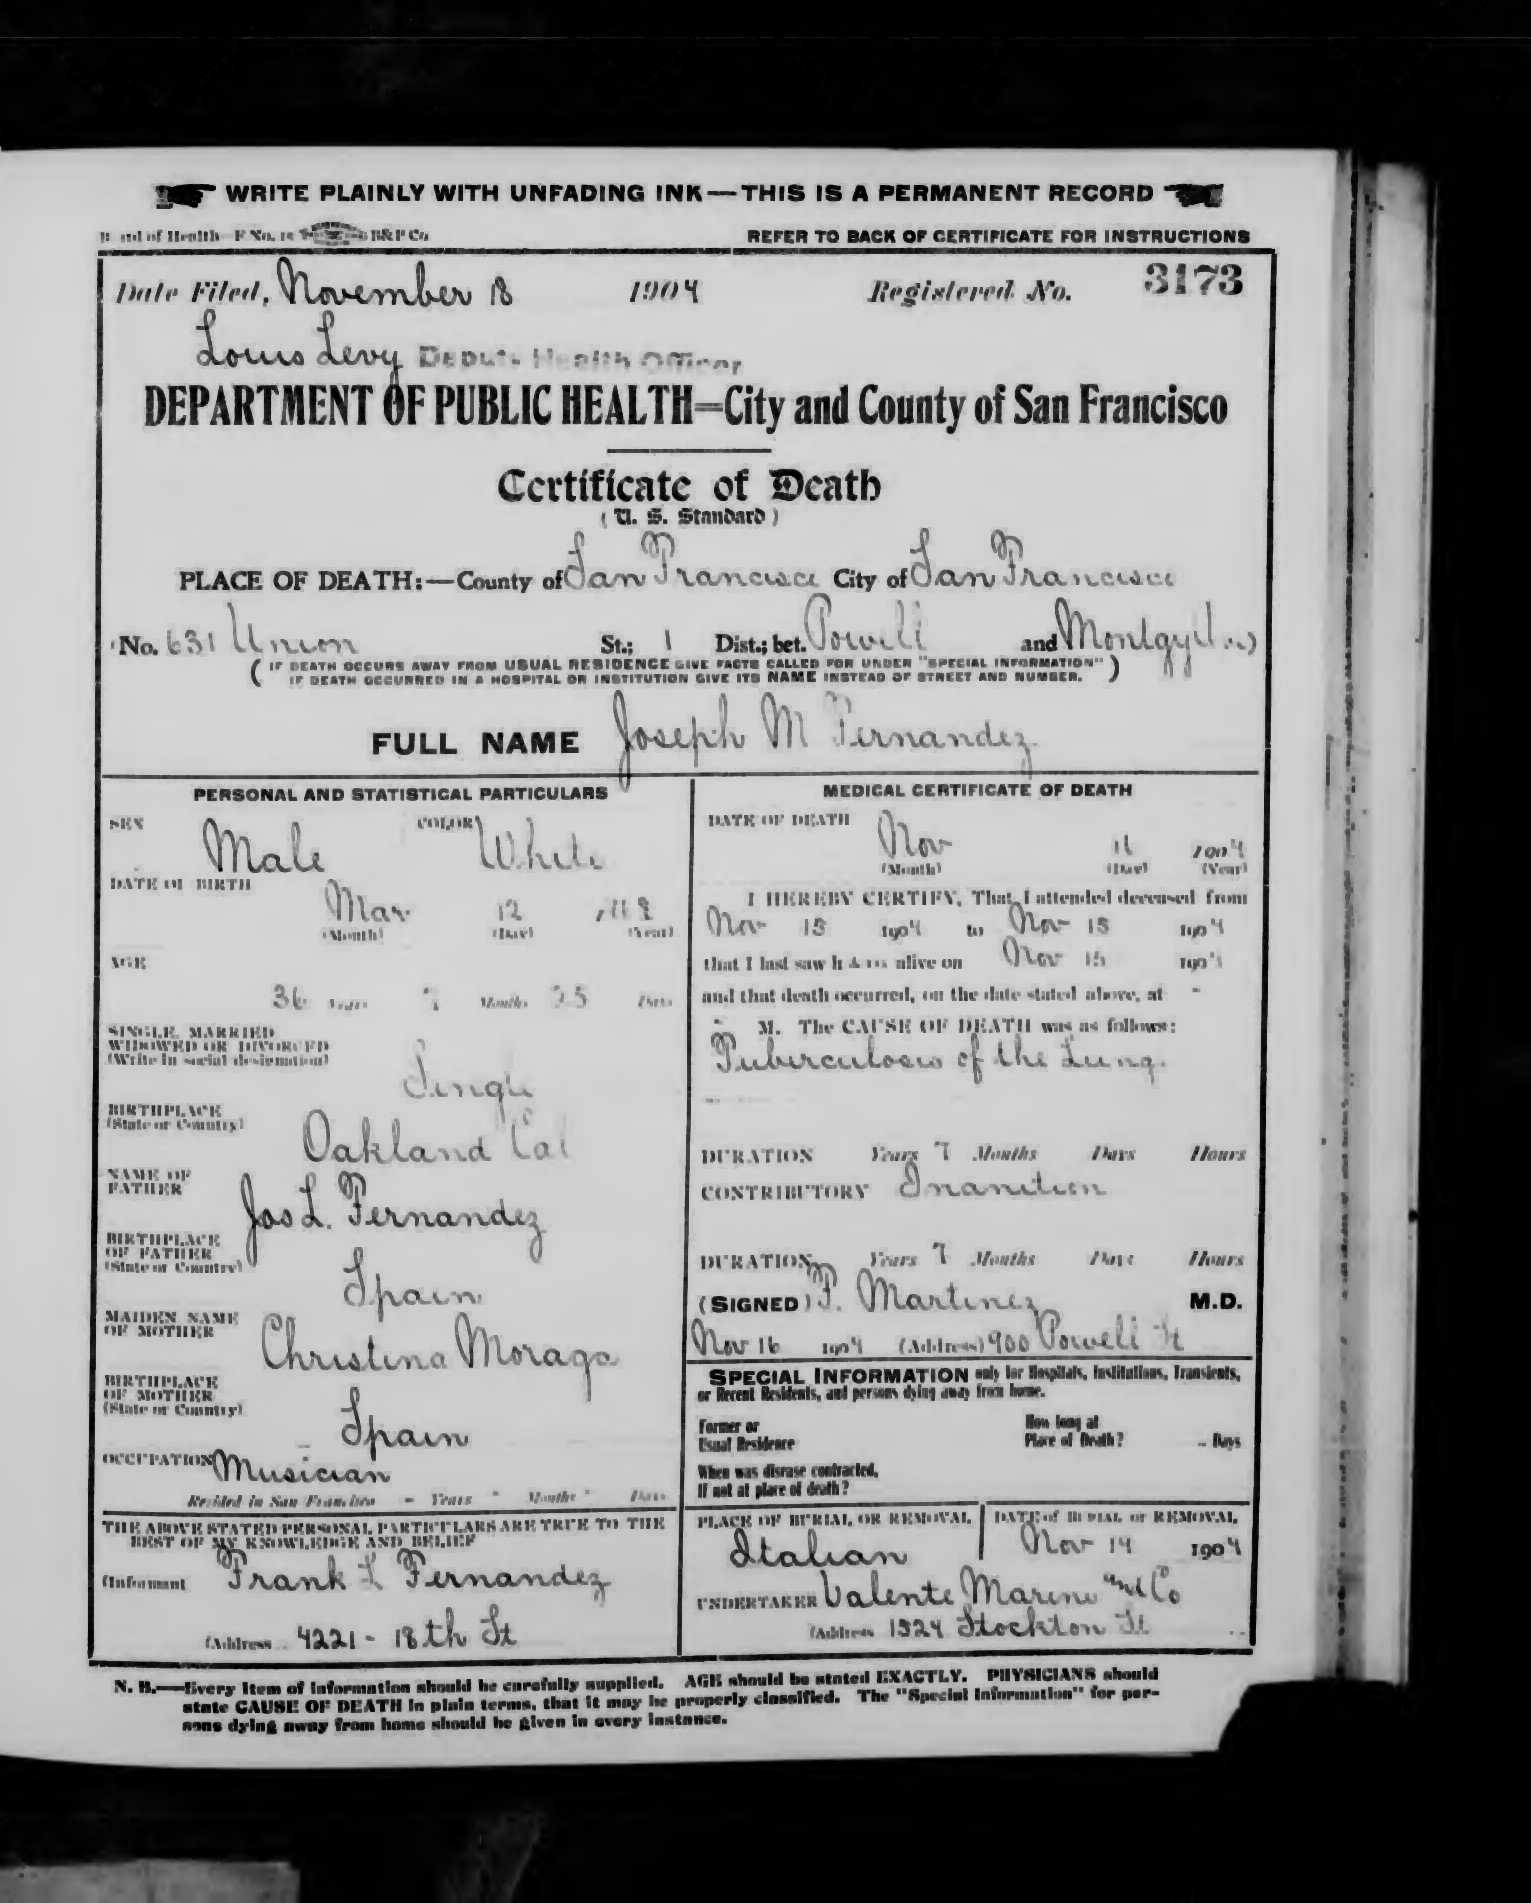 WRITE PLAINLY WITH UNFADING INK—THIS IS A PERMANENT RECORD
of Health B&P Co
REFER TO BACK OF CERTIFICATE FOR INSTRUCTIONS
Date Filed, November 18 1904 Registered No. 3173
Louis Levy Deputy Health Officer
DEPARTMENT OF PUBLIC HEALTH=City and County of San Francisco
Certificate of Death
(U. S. Standard)
PLACE OF DEATH:—County of San Francisco City of San Francisco
No. 631 Union St.; 1 Dist.; bet. Powell and
(IF DEATH OCCURS AWAY FROM USUAL RESIDENCE GIVE FACTS CALLED FOR UNDER "SPECIAL INFORMATION"
IF DEATH OCCURRED IN A HOSPITAL OR INSTITUTION GIVE ITS NAME INSTEAD OF STREET AND NUMBER.)
FULL NAME Joseph M Fernandez
PERSONAL AND STATISTICAL PARTICULARS
SEX Male COLOR White
DATE OF BIRTH
Mar 12
(Month) (Day) (Year)
AGE
36 Years Months 25 Days
SINGLE, MARRIED
WIDOWED OR DIVORCED
(Write in social designation)
Single
BIRTHPLACE
(State or Country)
Oakland Cal
NAME OF
FATHER
Jos L. Fernandez
BIRTHPLACE
OF FATHER
(State or Country)
Spain
MAIDEN NAME
OF MOTHER
Christina Moraga
BIRTHPLACE
OF MOTHER
(State or Country)
Spain
OCCUPATION Musician
Resided in San Francisco - Years - Months - Days
THE ABOVE STATED PERSONAL PARTICULARS ARE TRUE TO THE
BEST OF MY KNOWLEDGE AND BELIEF
(Informant Frank L Fernandez
(Address 4221 - 18th St
MEDICAL CERTIFICATE OF DEATH
DATE OF DEATH
Nov 1904
(Month) (Day) (Year)
I HEREBY CERTIFY, That I attended deceased from
Nov 15 1904 to Nov 15 1904
that I last saw h alive on Nov 15 1904
and that death occurred, on the date stated above, at -
- M. The CAUSE OF DEATH was as follows:
Tuberculosis of the Lung.
DURATION Years 7 Months Days Hours
CONTRIBUTORY Inanition
DURATION Years 7 Months Days Hours
(SIGNED) F. Martinez M.D.
Nov 16 1904 (Address) 900 Powell St
SPECIAL INFORMATION only for Hospitals, Institutions, Transients,
or Recent Residents, and persons dying away from home.
Former or
Usual Residence
How long at
Place of Death? .. Days
When was disease contracted,
If not at place of death?
PLACE OF BURIAL OR REMOVAL
Italian
DATE of BURIAL or REMOVAL
Nov 1904
UNDERTAKER Valente Marini and Co
(Address 1524 Stockton St
N. B.—Every item of information should be carefully supplied. AGE should be stated EXACTLY. PHYSICIANS should
state CAUSE OF DEATH in plain terms, that it may be properly classified. The "Special Information" for per-
sons dying away from home should be given in every instance.